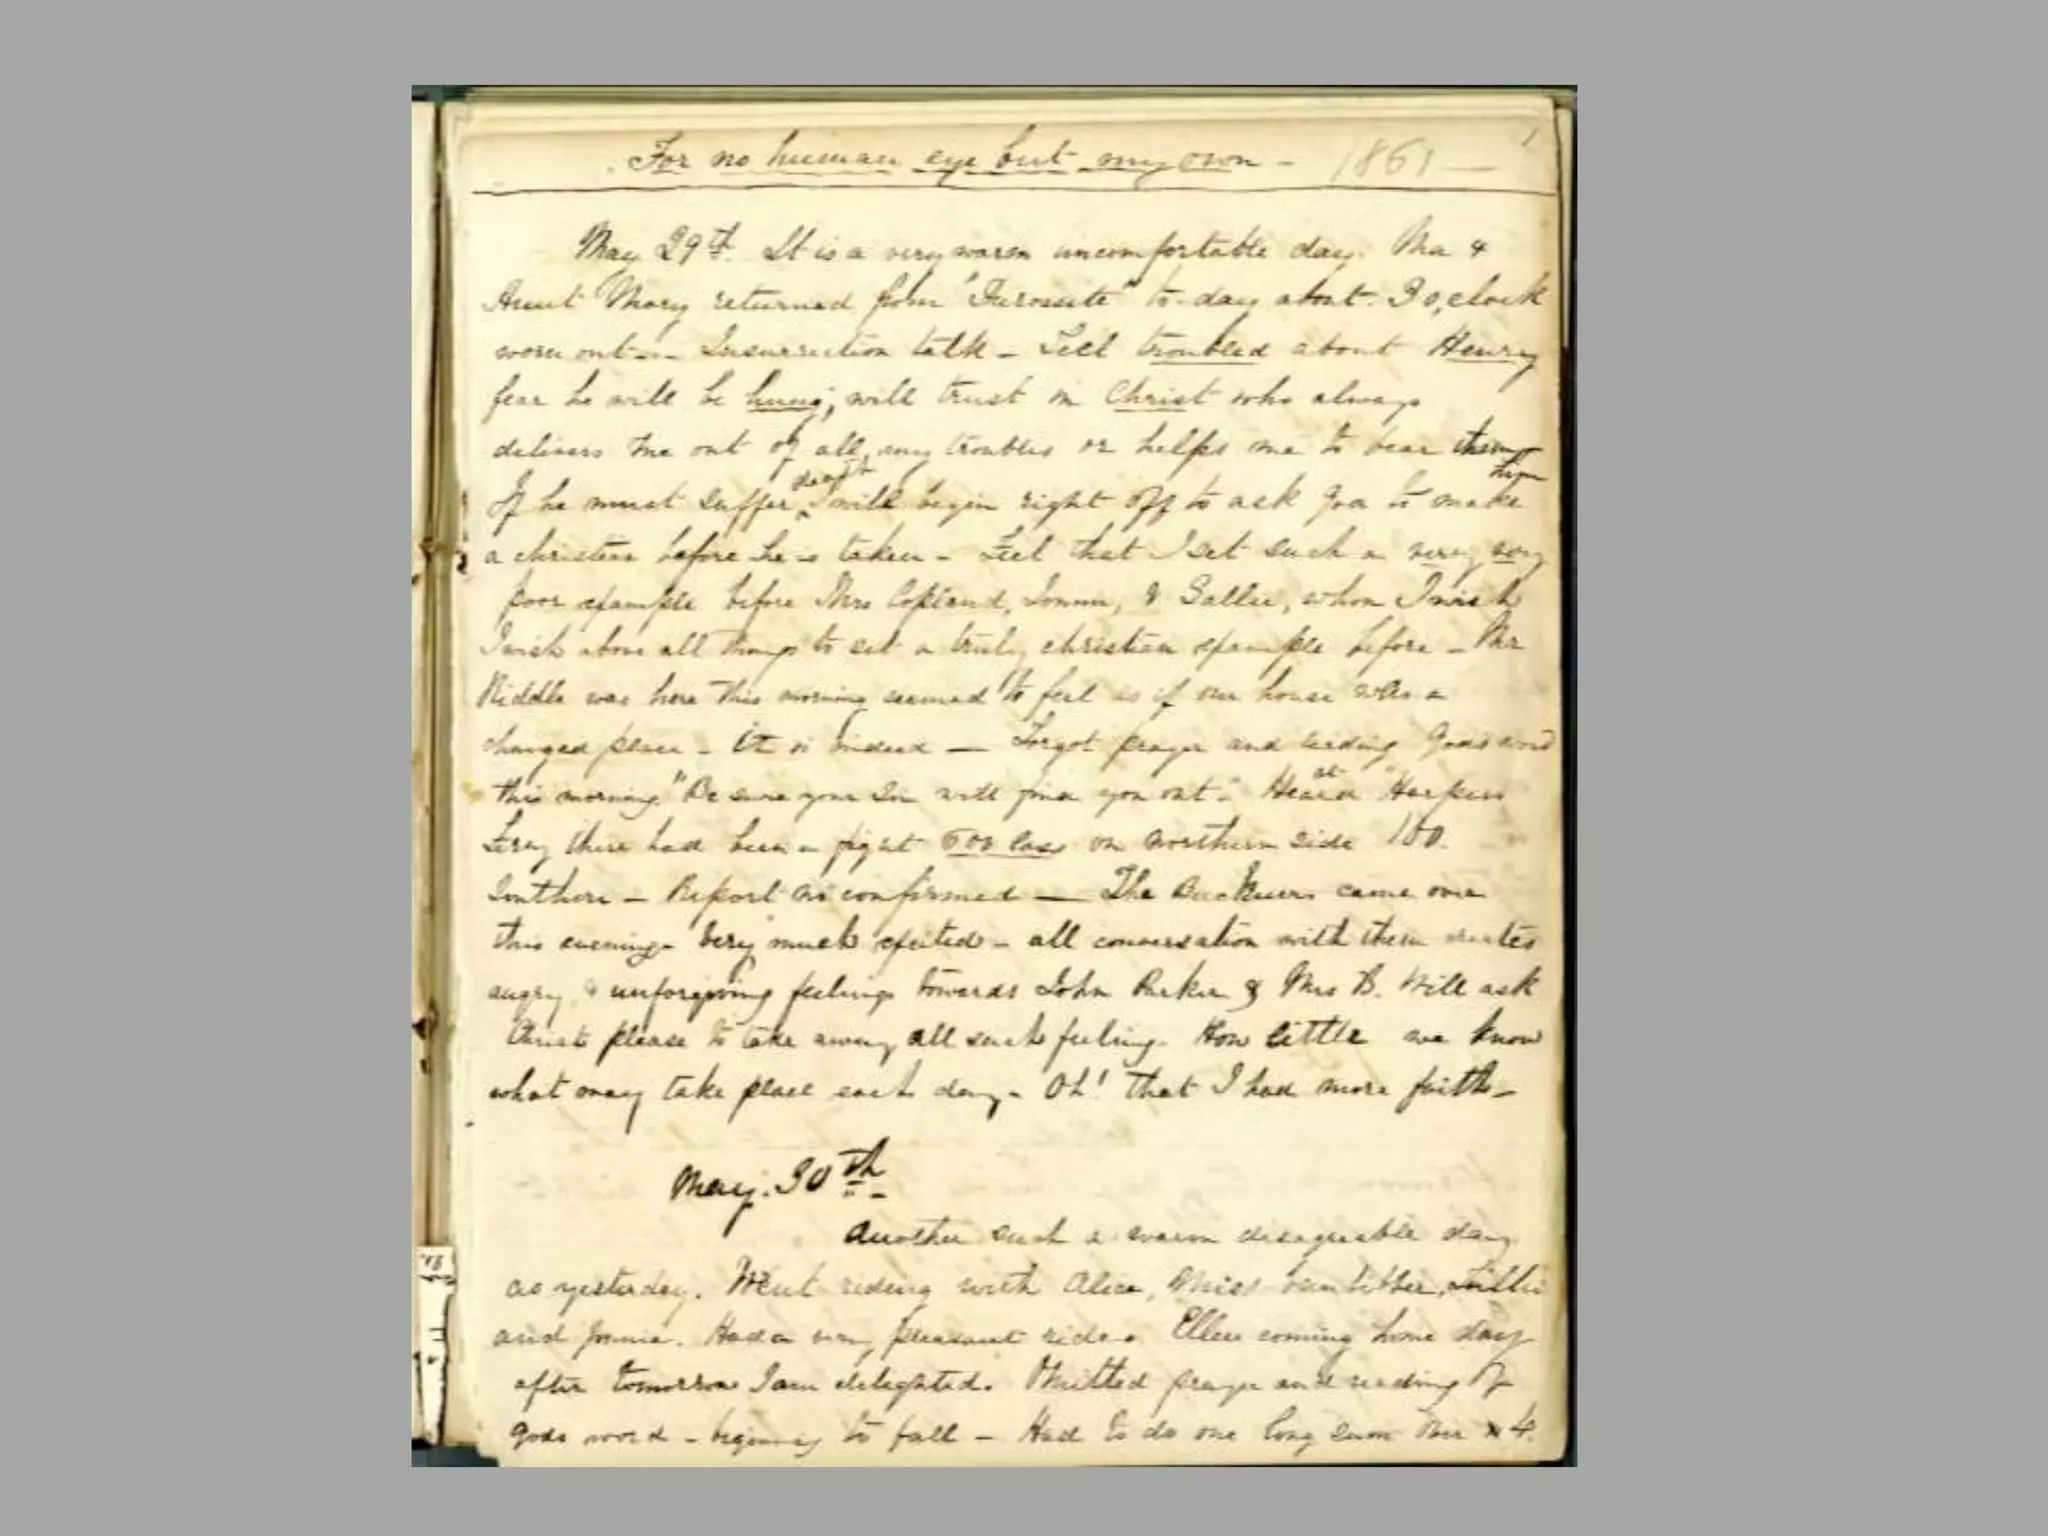 For no human eye but my own - 1861 —
May 29th. It is a very warm uncomfortable day. Ma &
Aunt Mary returned from " " to-day about 3 o,clock
worn out - Insurrection talk - Feel troubled about Henry
fear he will be hung; will trust in Christ who always
delivers me out of all my troubles or helps me to bear them
death him
If he must suffer ^ I will begin right off to ask God to make
a christian before he is taken - Feel that I set such a very very
poor example before Mrs Copland, & Sallie, whom I wish
I wish above all things to set a truly christian example before - Mr
Riddle was here this morning seemed to feel as if our house was a
changed place - it is indeed — Forgot prayer and reading Gods word
this morning. "Be sure your Sin will find you out." Heard at Harpers
Fery there had been a fight 600 loss on Northern side 100.
Southern - Report is confirmed — The Buckners came over
this evening - Very much excited - all conversation with them creates
angry & unforgiving feelings towards John Parker & Mrs B. Will ask
Christ please to take away all such feeling. How little we know
what may take place each day - Oh! that I had more faith -
May. 30th
Another such a warm disagreeable day
as yesterday. Went riding with Alice, Miss
and Jonnie. Had a very pleasant ride. Ellen coming home day
after tomorrow I am delighted. Omitted prayer and reading of
gods word - beginning to fall - Had to do one long sum 4.